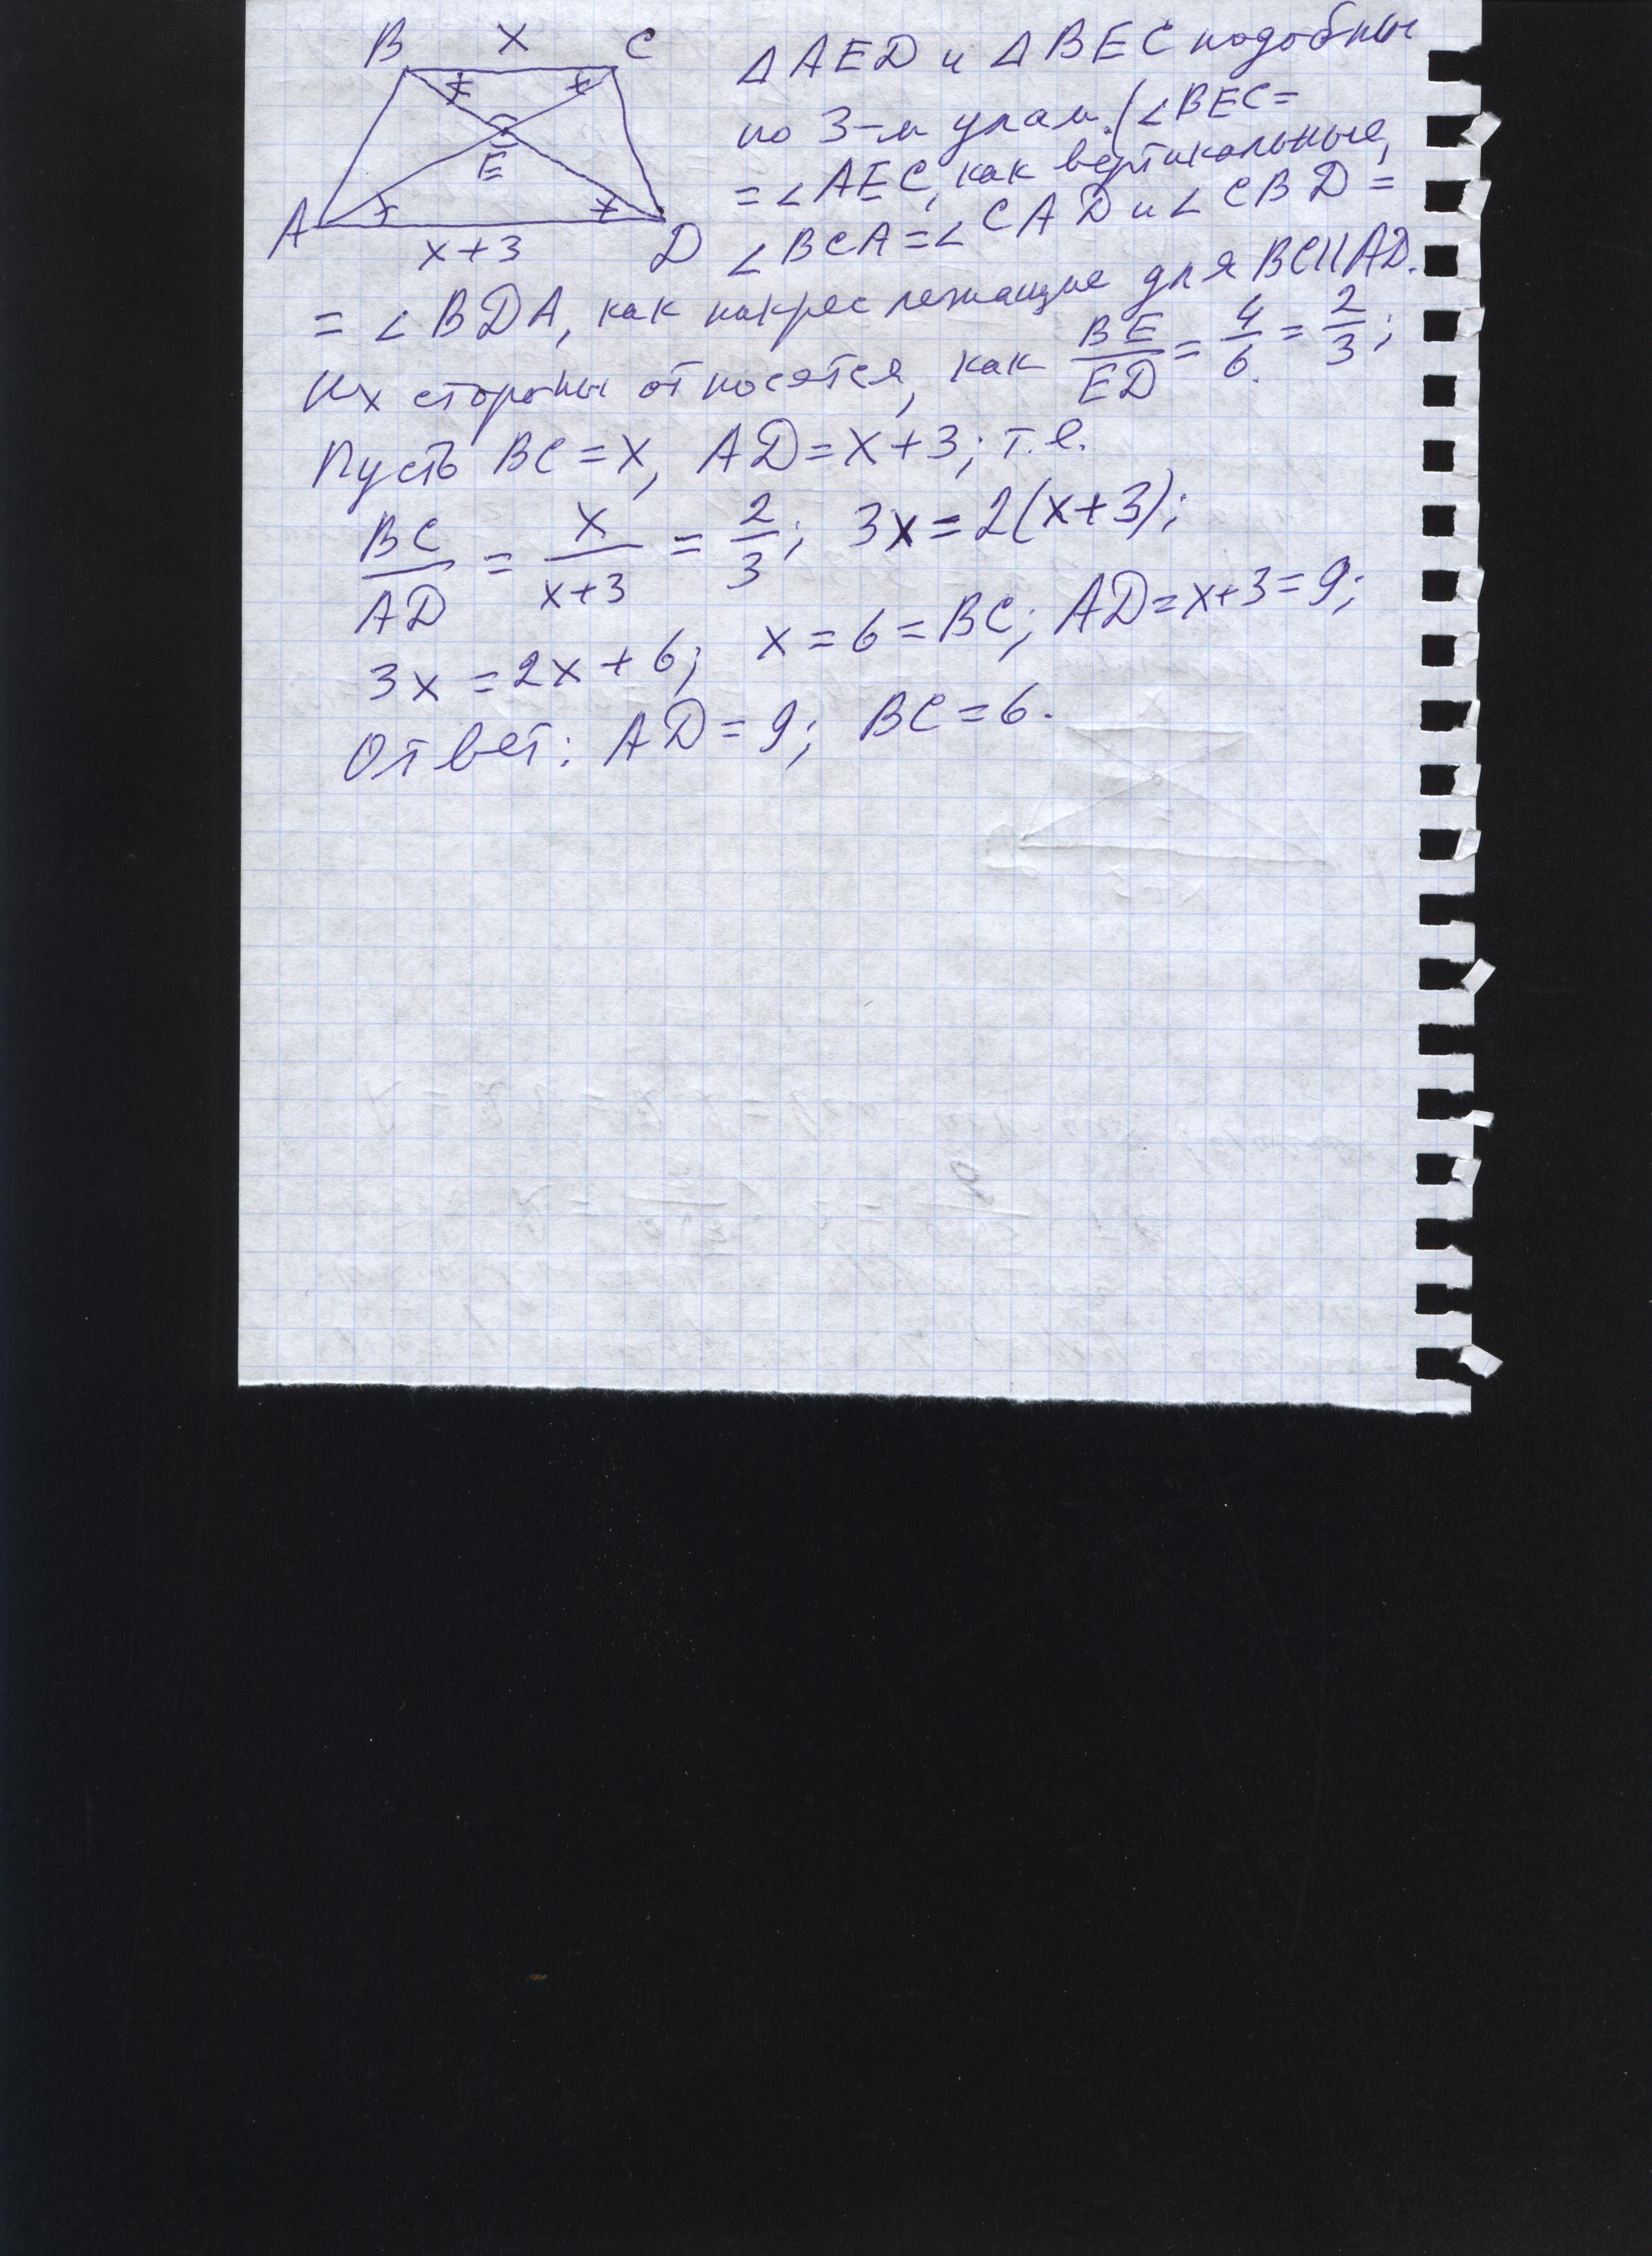 B x C
E
A x+3 D
Δ AED и Δ BEC подобны
по 3-м углам. (∠BEC=
= ∠AEC, как вертикальные,
∠BCA = ∠CAD и ∠CBD =
= ∠BDA, как накрест лежащие для BC||AD.
Их стороны относятся, как BE/ED = 4/6 = 2/3;
Пусть BC = x, AD = x+3; т.е.
BC/AD = x/x+3 = 2/3; 3x = 2(x+3);
3x = 2x + 6; x = 6 = BC; AD = x+3 = 9;
Ответ: AD = 9; BC = 6.